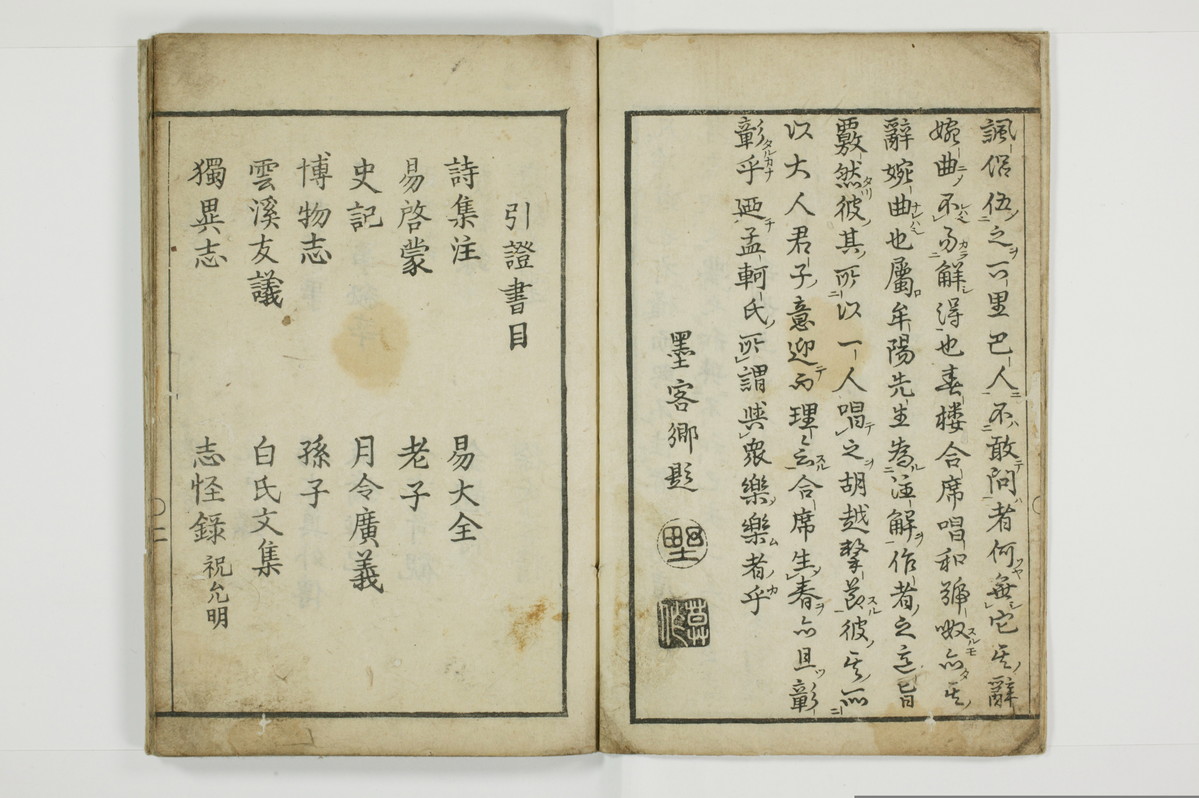 諷俗伍之一里巴人不敢問者何無它其辭
婉曲不易解得也春楼合席唱和號呶亦其
辭婉曲也屬牟陽先生為注解作者之意旨
覈然彼其所以一人唱之胡越撃節彼其所
以大人君子意迎而理云合席生春亦且彰
彰乎廼孟軻氏所謂與衆樂樂者乎
墨客卿題
引證書目
詩集注 易大全
易啓蒙 老子
史記 月令廣義
博物志 孫子
雲溪友議 白氏文集
獨異志 志怪錄 祝允明